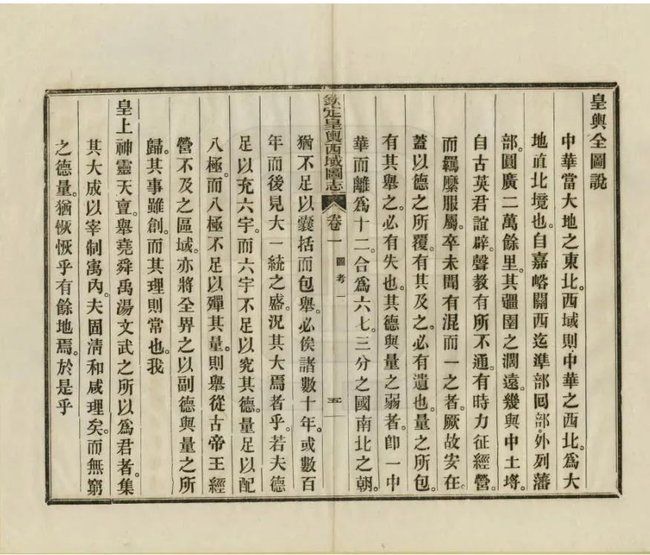 皇輿全圖說
中華當大地之東北。西域則中華之西北。為大
地直北境也。自嘉峪關西迄準部回部。外列藩
部。圓廣二萬餘里。其疆圉之濶遠。幾與中土埒。
自古英君誼辟。聲教有所不通。有時力征經營。
而羈縻服屬。卒未聞有混而一之者。厥故安在。
蓋以德之所覆。有其及之。必有遺也。量之所包。
有其舉之。必有失也。其德與量之弱者。卽一中
華而離為十二。合為六七。三分之國。南北之朝。
欽定皇輿西域圖志 卷一 圖考一 五
猶不足以囊括而包舉。必俟諸數十年。或數百
年而後見大一統之盛。況其大焉者乎。若夫德
足以充六宇。而六宇不足以究其德。量足以配
八極。而八極不足以殫其量。則舉從古帝王經
營不及之區域。亦將全界之以副德與量之所
歸。其事雖創。而其理則常也。我
皇上神靈天亶。舉堯舜禹湯文武之所以為君者。集
其大成以宰制寓內。夫固清和咸理矣。而無窮
之德量。猶恢恢乎有餘地焉。於是乎